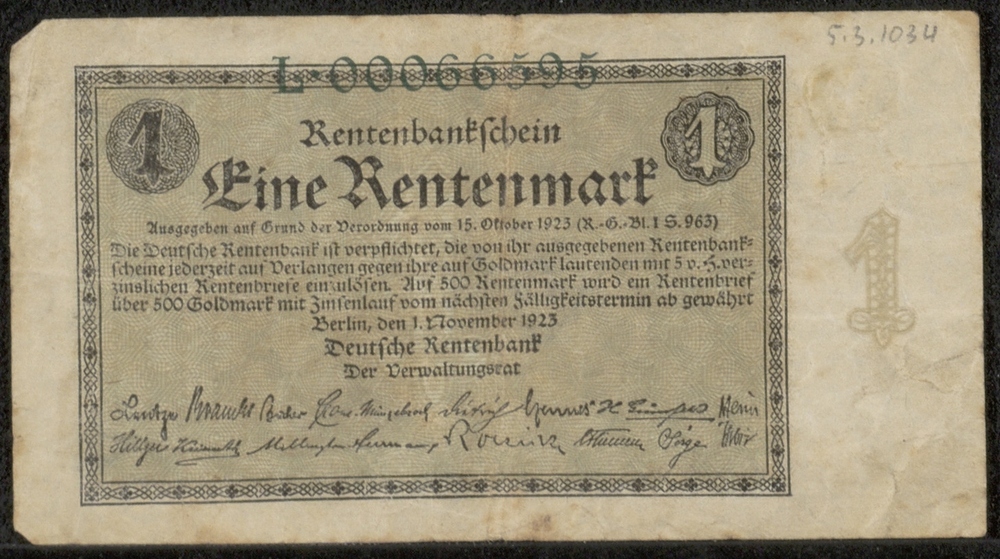 5.3.1034
L·00066595
1
1
Rentenbankschein
Eine Rentenmark
Ausgegeben auf Grund der Verordnung vom 15. Oktober 1923 (R.-G.-Bl. I S. 963)
Die Deutsche Rentenbank ist verpflichtet, die von ihr ausgegebenen Rentenbank-
scheine jederzeit auf Verlangen gegen ihre auf Goldmark lautenden mit 5 v. H. ver-
zinslichen Rentenbriefe einzulösen. Auf 500 Rentenmark wird ein Rentenbrief
über 500 Goldmark mit Zinsenlauf vom nächsten Fälligkeitstermin ab gewährt
1
Berlin, den 1. November 1923
Deutsche Rentenbank
Der Verwaltungsrat